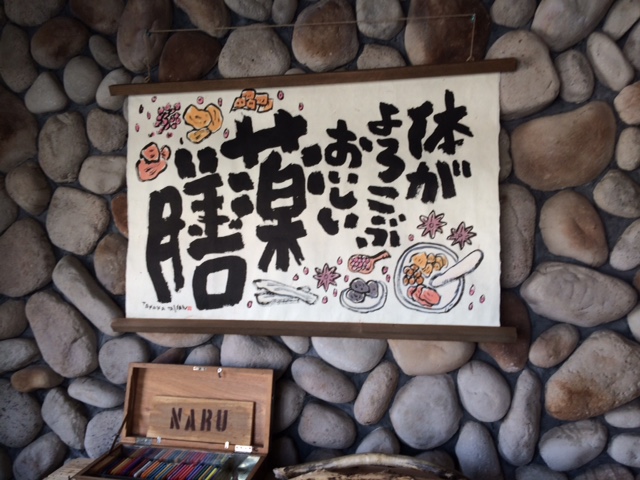 体が
よろこぶ
おいしい
薬膳
NARU